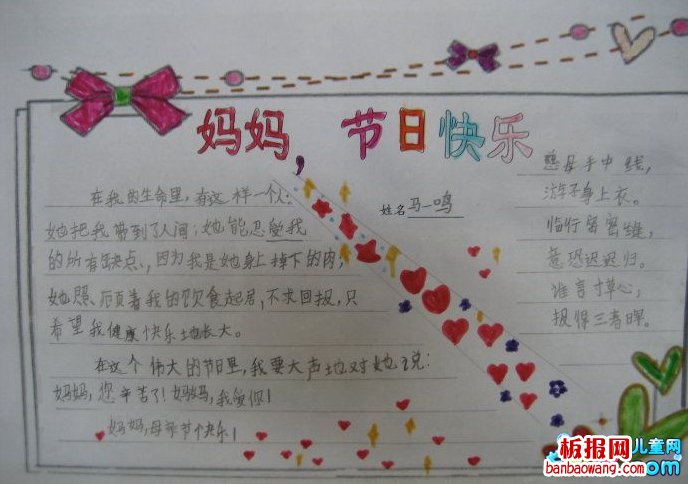 妈妈，节日快乐
姓名 马一鸣
在我的生命里，有这一样一个人：
她把我带到了人间；她能忍受我
的所有缺点，因为我是她身上掉下的肉；
她照顾着我的饮食起居，不求回报，只
希望我健康快乐地长大。
在这个伟大的节日里，我要大声地对她说：
妈妈，您辛苦了！妈妈，我爱你！
妈妈，母亲节快乐！
慈母手中线，
游子身上衣。
临行密密缝，
意恐迟迟归。
谁言寸草心，
报得三春晖。
板报网
儿童网
banbaowang.com